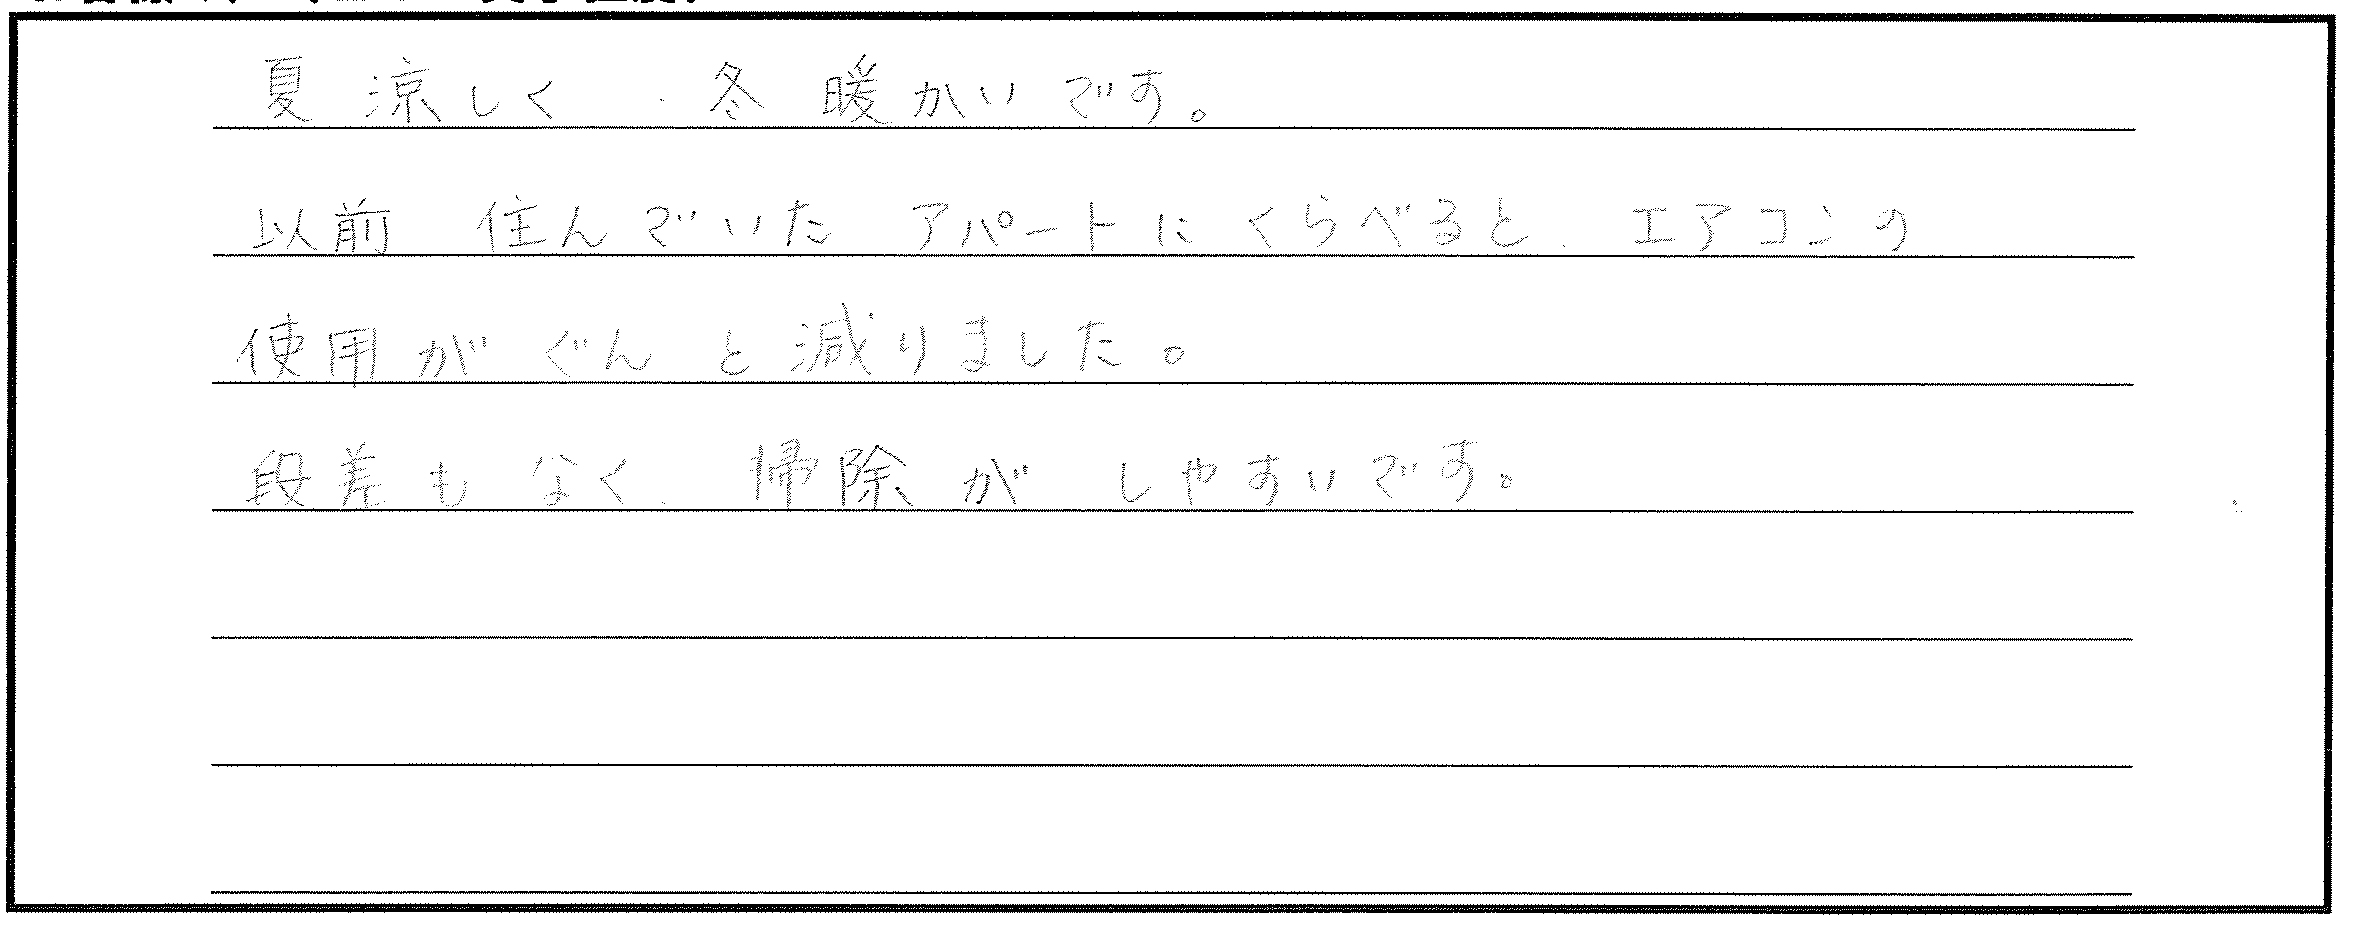 夏涼しく、冬暖かいです。
以前住んでいたアパートにくらべると、エアコンの
使用がぐんと減りました。
段差もなく、掃除がしやすいです。